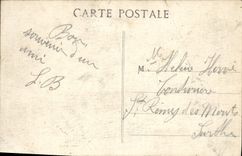 CARTE POSTALE
Bon
souvenir d'un
ami
L B
M. Helie Hervé
St Rémy des Monts
Sarthe